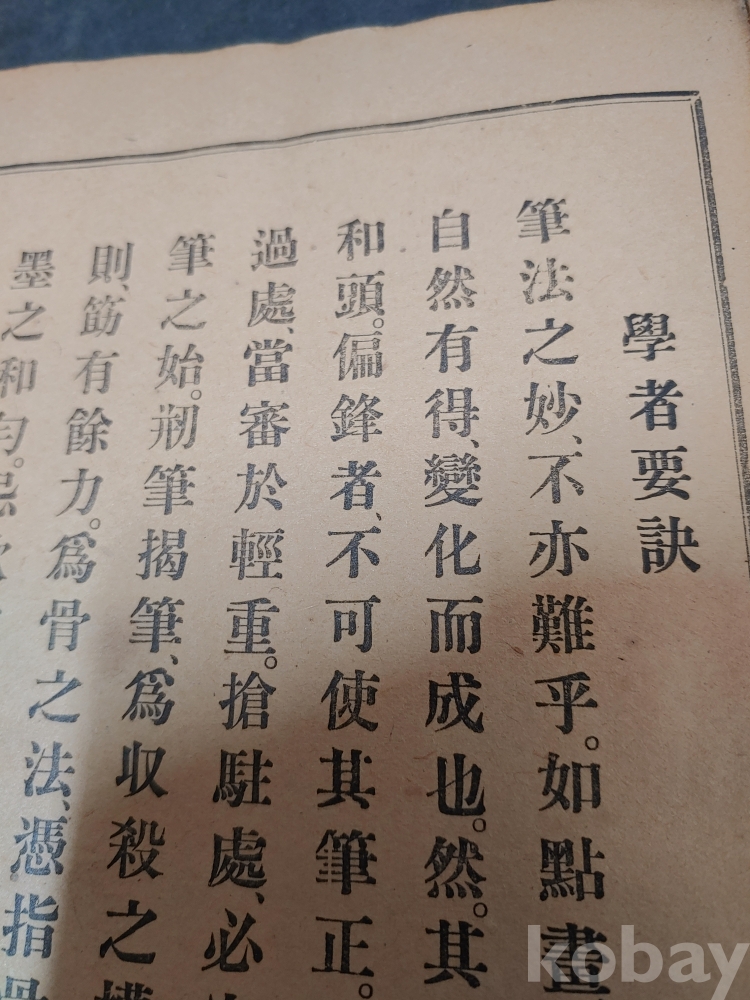 學者要訣
筆法之妙、不亦難乎。如點畫
自然有得、變化而成也。然。其
和頭。偏鋒者、不可使其筆正。
過處、當審於輕重。搶駐處、必
筆之始。剏筆揭筆、爲收殺之
則、筋有餘力。爲骨之法、憑指骨
墨之和勻。忌
kobay